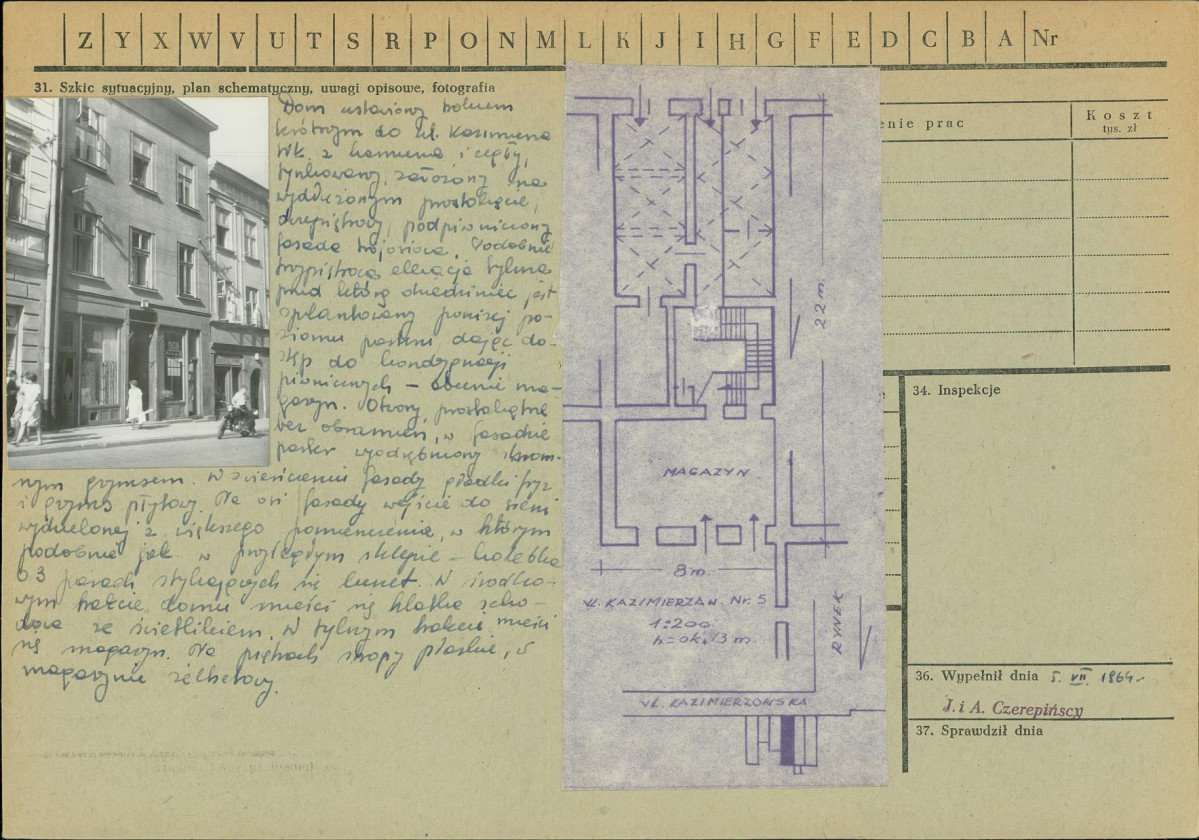 Z Y X W V U T S R P O N M L K J I H G F E D C B A Nr
31. Szkic sytuacyjny, plan schematyczny, uwagi opisowe, fotografia
Dom ustawiony bokiem
krótszym do ul. Kazimierza
Wk. z kamienia i cegły,
tynkowany, założony na
wydłużonym prostokącie,
dwupiętrowy, podpiwniczony
fasada trójosiowa. Podobnie
trzypiętrowa elewacja tylna
przed którą dziedziniec jest
splantowany poniżej po-
ziomu parteru dając do-
stęp do kondygnacji
piwnicznych – obecnie ma-
gazyn. Otwory prostokątne
bez obramień, w fasadzie
parter wyodrębniony skrom-
nym gzymsem. W zwieńczeniu fasady gładki fryz
i gzyms płytowy. Na osi fasady wejście do sieni
wydzielonej z większego pomieszczenia, w którym
podobnie jak w przyległym sklepie – kolebka
o 3 parach stykających się lunet. W środko-
wym trakcie domu mieści się klatka scho-
dowa ze świetlikiem. W tylnym trakcie mieści
się magazyn. Na piętrach stropy płaskie, w
magazynie żelbetowy.
MAGAZYN
22 m.
8 m.
UL. KAZIMIERZA W. Nr. 5
1:200
h= ok. 13 m.
RYNEK
UL. KAZIMIERZOWSKA
enie prac
Koszt
tys. zł
34. Inspekcje
36. Wypełnił dnia 5. VII. 1964 r.
J. i A. Czerepińscy
37. Sprawdził dnia